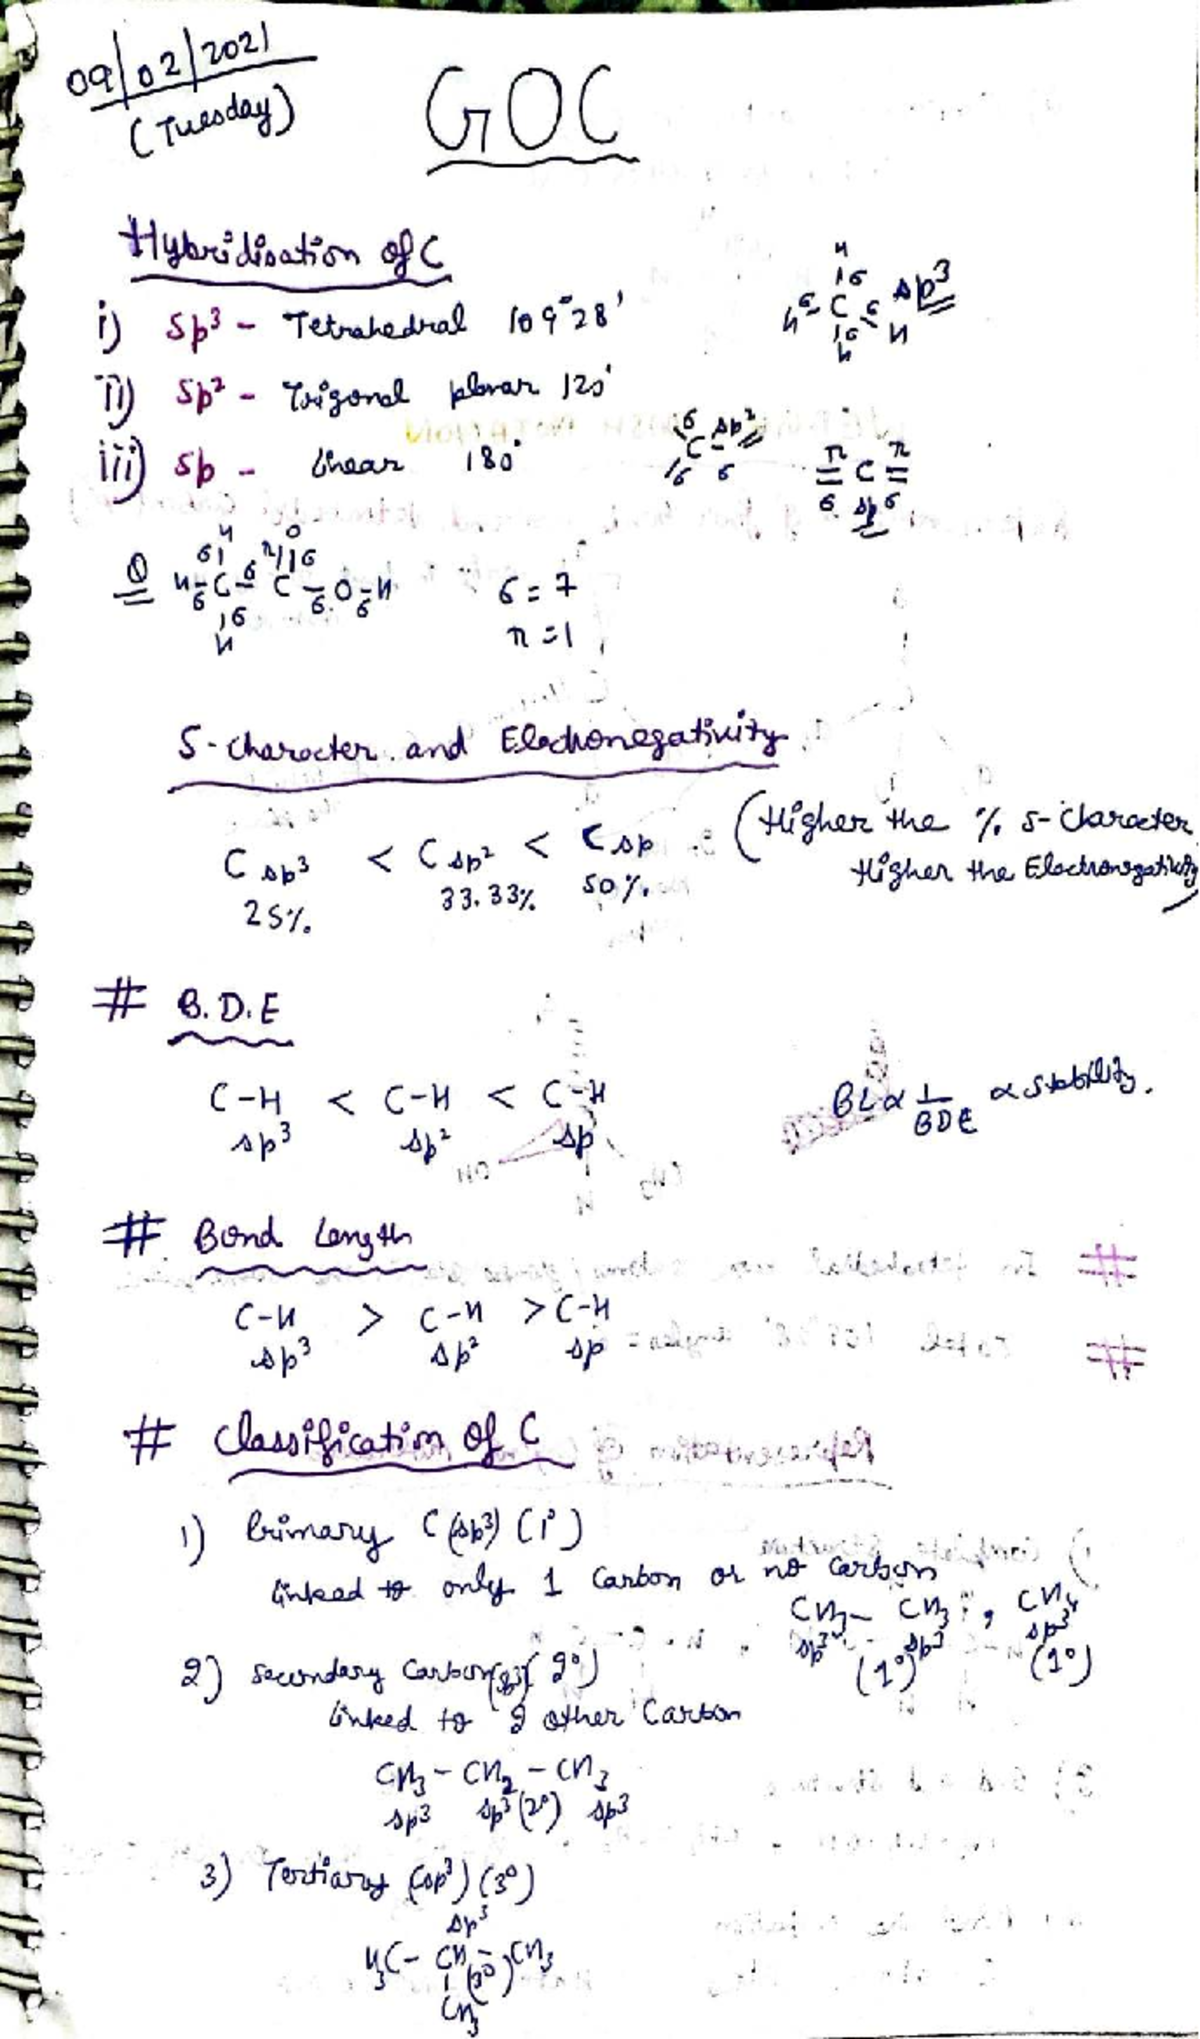 09/02/2021
(Tuesday)
GOC
Hybridisation of C
i) Sp³ - Tetrahedral 109°28'
ii) Sp² - Trigonal planar 120°
iii) Sp - linear 180°
H
|σ
H σ- C σ- H sp³
|σ
H
σ
C - sp²
σ σ
π π
= C =
σ sp σ
Q
H O
σ| π||σ
H - C - C - O - H
σ σ σ σ
|σ
H
σ = 7
π = 1
S-Character and Electronegativity
C sp³ < C sp² < C sp
25% 33.33% 50%
(Higher the % s-Character
Higher the Electronegativity)
# B.D.E
C-H < C-H < C-H
sp³ sp² sp
BL ∝ 1/BDE ∝ Stability.
# Bond Length
C-H > C-H > C-H
sp³ sp² sp
# Classification of C
1) Primary C (sp³) (1°)
linked to only 1 Carbon or no carbon
CH₃ - CH₃, CH₄
sp³ sp³ sp³
(1°) (1°)
2) Secondary Carbon (sp³) (2°)
linked to 2 other Carbon
CH₃ - CH₂ - CH₃
sp³ sp³(2°) sp³
3) Tertiary (sp³) (3°)
sp³
H₃C - CH - CH₃
| (3°)
CH₃